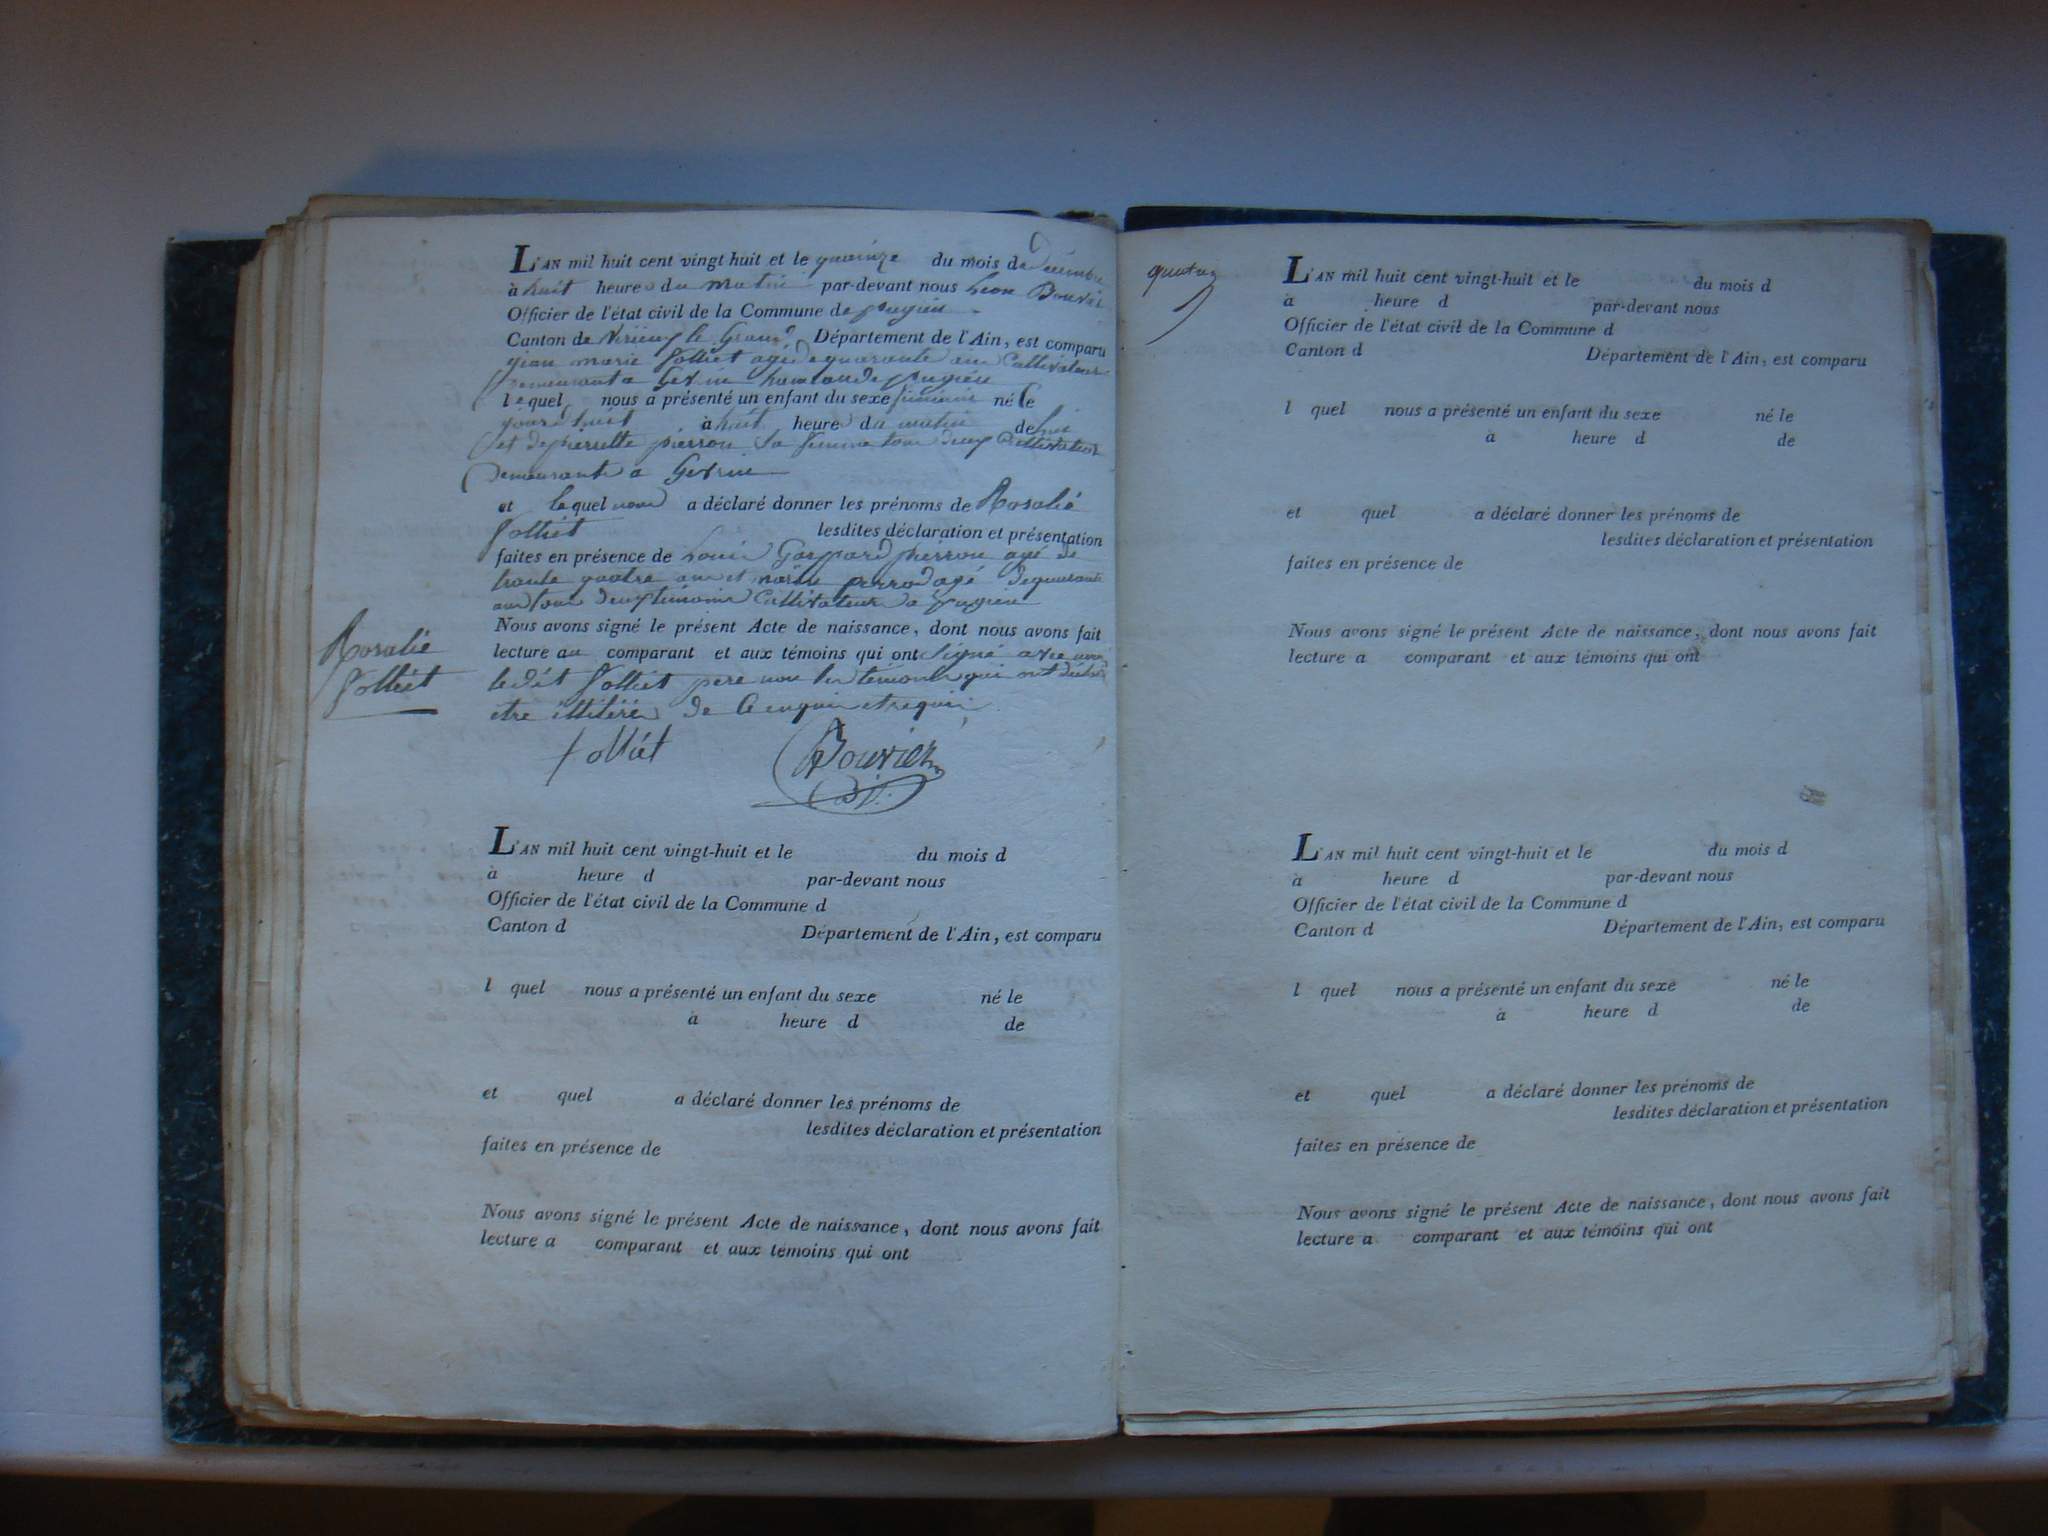 L'AN mil huit cent vingt huit et le quainze du mois de Décembre
à huit heure du matin par-devant nous Léon Bouvier
Officier de l'état civil de la Commune de pugieu
Canton de Virieux le Grand Département de l'Ain, est comparu
jean marie folliet agé de quarante ans Cultivateur
demeurant a hameau de pugieu
lequel nous a présenté un enfant du sexe féminin né le
à huit heure du matin de lui
et de pierrette pierron sa femme tous deux Cultivateur
Demeurants a
et lequel nous a déclaré donner les prénoms de Rosalie
folliet lesdites déclaration et présentation
faites en présence de Louis Gaspard pierron agé de
trante quatre ans et agé de quarante
ans tous deux témoins Cultivateur a pugieu
Nous avons signé le présent Acte de naissance, dont nous avons fait
lecture au comparant et aux témoins qui ont signé avec nous
ledit folliet pere non les témoins qui ont déclaré
etre illitéré de ce enquis et requis
Rosalie
folliet
folliet Bouvier
L'AN mil huit cent vingt-huit et le du mois d
à heure d par-devant nous
Officier de l'état civil de la Commune d
Canton d Département de l'Ain, est comparu
l quel nous a présenté un enfant du sexe né le
à heure d de
et quel a déclaré donner les prénoms de
lesdites déclaration et présentation
faites en présence de
Nous avons signé le présent Acte de naissance, dont nous avons fait
lecture a comparant et aux témoins qui ont
L'AN mil huit cent vingt-huit et le du mois d
à heure d par-devant nous
Officier de l'état civil de la Commune d
Canton d Département de l'Ain, est comparu
l quel nous a présenté un enfant du sexe né le
à heure d de
et quel a déclaré donner les prénoms de
lesdites déclaration et présentation
faites en présence de
Nous avons signé le présent Acte de naissance, dont nous avons fait
lecture a comparant et aux témoins qui ont
L'AN mil huit cent vingt-huit et le du mois d
à heure d par-devant nous
Officier de l'état civil de la Commune d
Canton d Département de l'Ain, est comparu
l quel nous a présenté un enfant du sexe né le
à heure d de
et quel a déclaré donner les prénoms de
lesdites déclaration et présentation
faites en présence de
Nous avons signé le présent Acte de naissance, dont nous avons fait
lecture a comparant et aux témoins qui ont